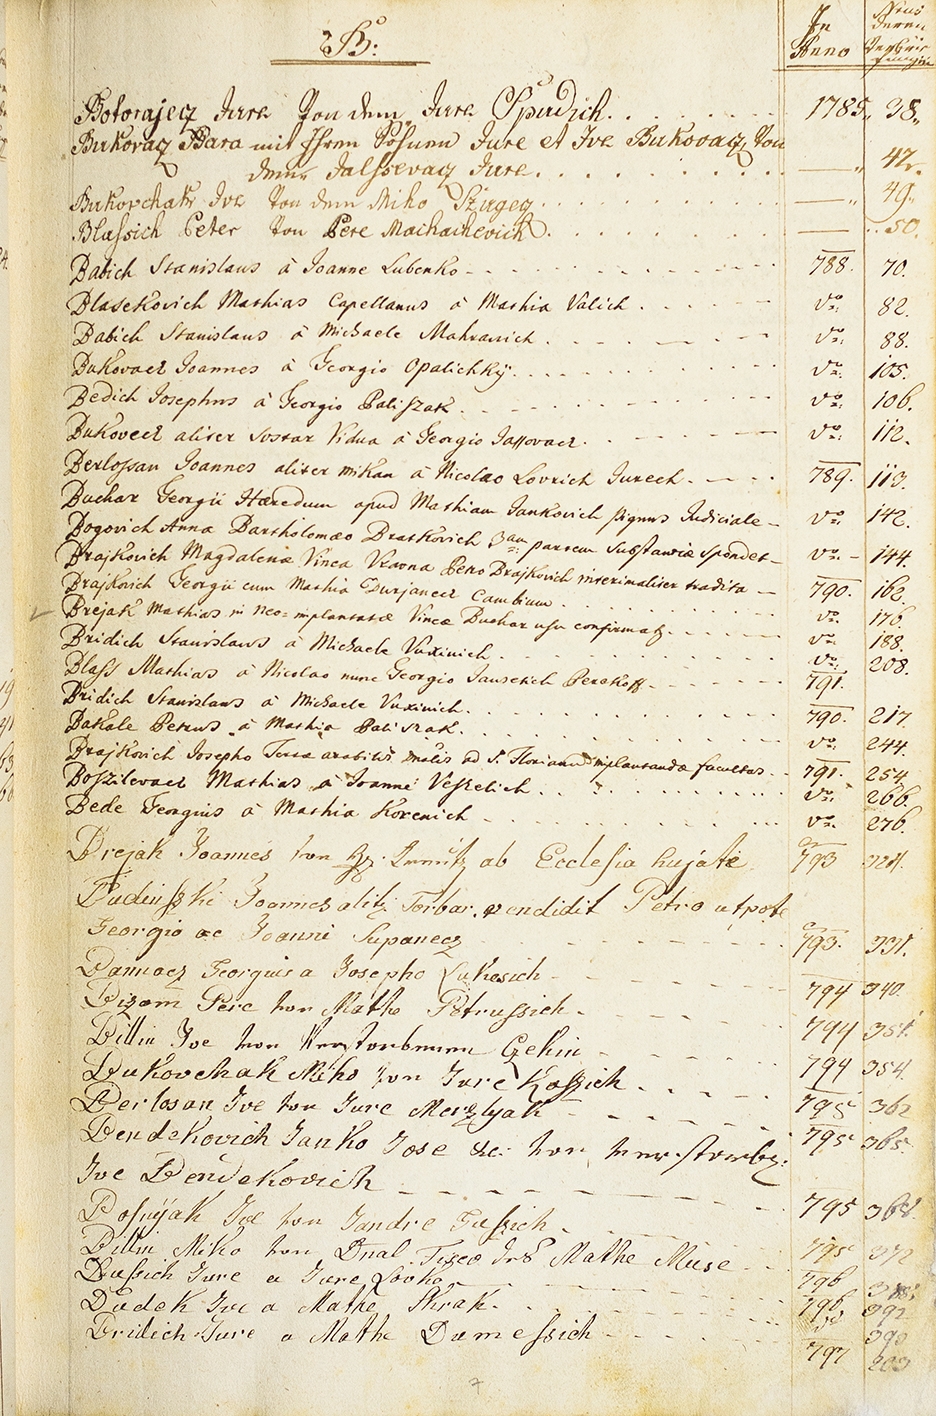 B:
In Anno
Botorajecz Jure Von dem Jure Spudich. 1785. 38.
Bukovacz Bara mit Ihren Sohnen Jure et Ive Bukovacz, Von
denen Jalssevacz Jure. — 42.
Bukovchak Ive Von dem Miko — 49.
Blassich Peter Von Pere Machachevich. — 50.
Babich Stanislaus à Joanne Lubenko 788. 70.
Blasekovich Mathias Capellanus à Mathia Valich do. 82.
Babich Stanislaus à Michaele Mahranich do. 88.
Bukovacz Joannes à Georgio Opalichky do. 105.
Bedich Josephus à Georgio Paliszak do. 106.
Bukovecz aliter Sostar Vidua à Georgio Jassovacz. do. 112.
Berlossan Joannes aliter Mikan à Nicolao Lovrich Jurech. 789. 113.
Buchar Georgii Hæredum apud Mathiam Jankovich pignus Judiciale do. 142.
Bogovich Anna Bartholomæo Bratkovich 3am partem Substantiæ spondet do. 144.
Brajkovich Magdalena Vinea Pero Brajkovich interimaliter tradita 790. 162.
Brajkovich Georgii cum Mathia Durjanecz Cambium do. 176.
Brejak Mathias in neo-implantatæ Vineæ Buchar usu confirmat. do. 188.
Bridich Stanislaus à Michaele Vuxinich do. 208.
Blass Mathias à Nicolao nunc Georgio Jansetich Perekoff 791.
Bridich Stanislaus à Michaele Vuxinich. 790. 217.
Bakale Petrus à Mathia Paliszak. do. 244.
Brajkovich Josepho Terra arabilis ad S. Florianum implantandæ facultas. 791. 254.
Boszilevacz Mathias à Joanne Veszelich do. 266.
Bede Georgius à Mathia Korenich do. 276.
Brejak Joannes von ab Ecclesia hujate 793 324.
Budinszki Joannes alit. Torbar, vendidit Petro utpote
Georgio ac Joanni Supanecz 793. 331.
Bannacz Georgius a Josepho Lukesich 794 340.
Bizom Pere von Mathe Petrussich 794 351.
Billin Ive von Verstorbenen Gehin 794 354.
Bukovchak Miko von Jure Kassich 795 362
Berlosan Ive von Jure Merzlyak 795 365.
Bendekovich Janko Jose &c: von verstorb.
Ive Bendekovich 795
Bosnyak Ive von Jandre Tussich 795 372
Billin Miko von Mathe Muse 796
Bussich Jure a Jure Lovko 796 392
Budek Ive a Mathe Skrak. 390
Bridich Jure a Mathe Damessich 797